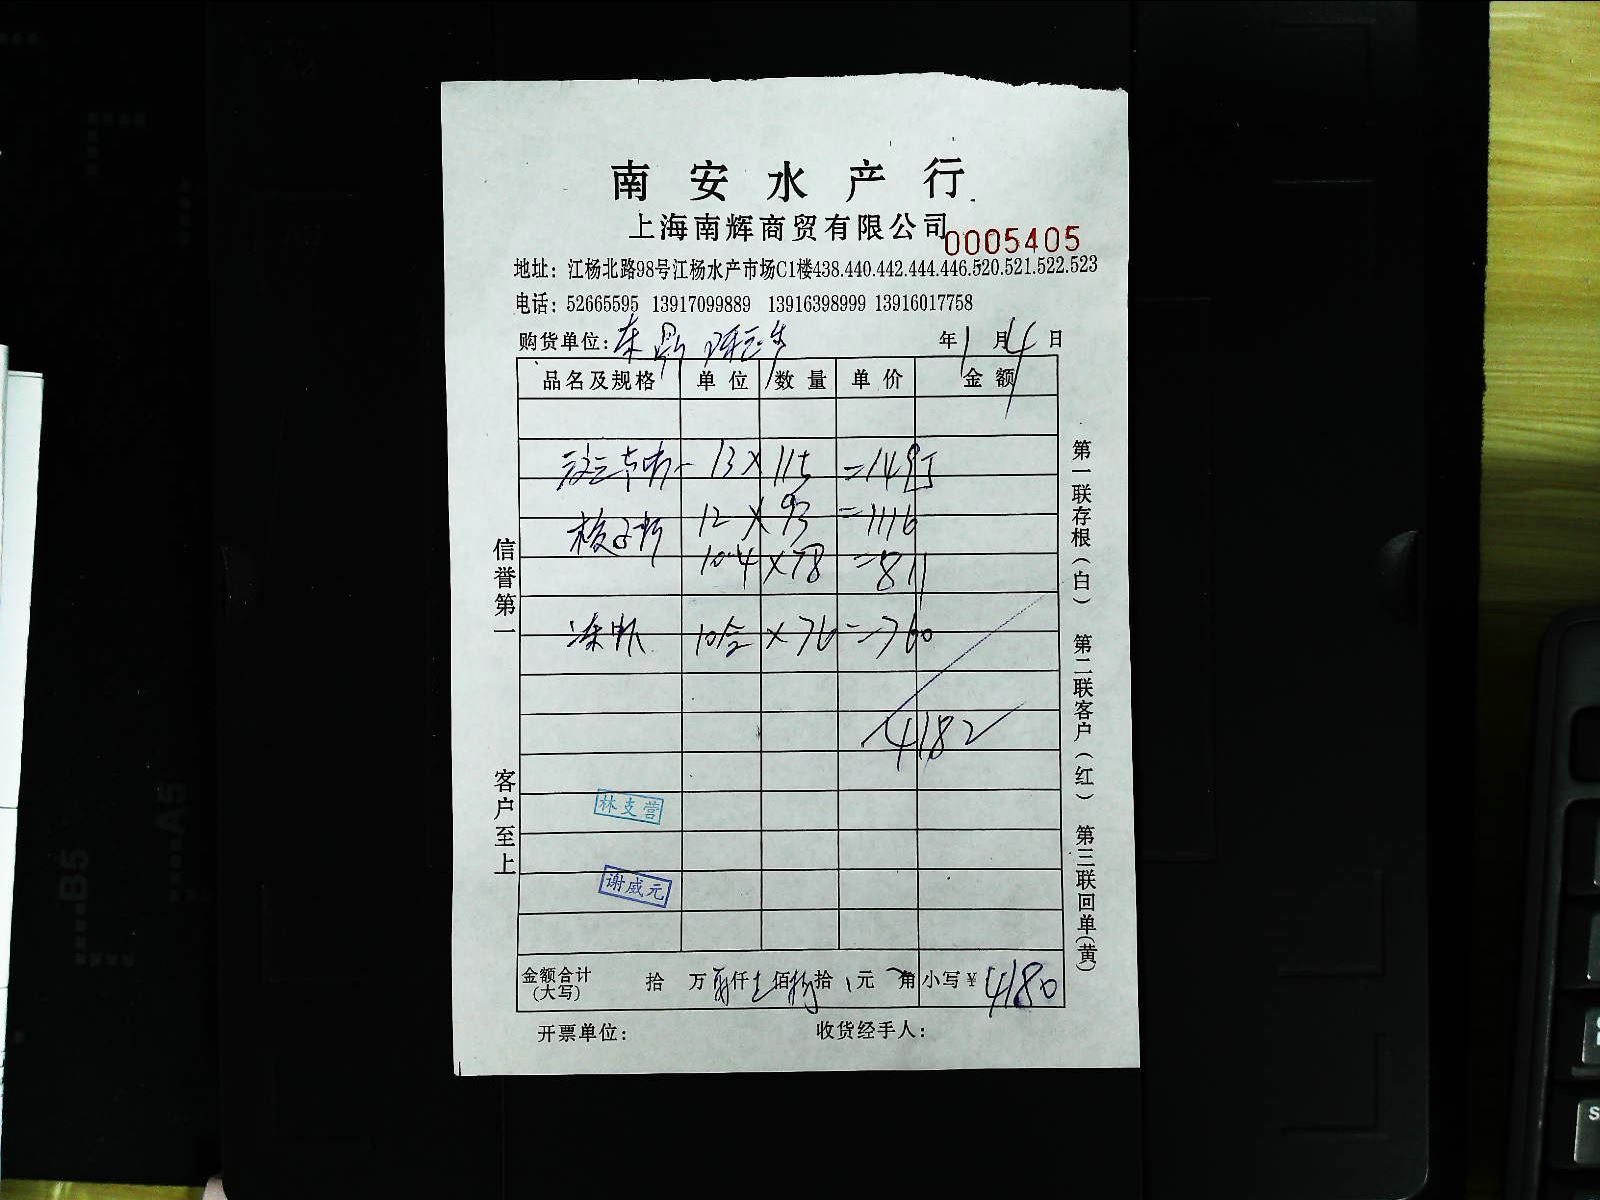 南安水产行
上海南辉商贸有限公司
0005405
地址：江杨北路98号江杨水产市场C1楼438.440.442.444.446.520.521.522.523
电话：52665595 13917099889 13916398999 13916017758
购货单位： 年1月4日
品名及规格 单位 数量 单价 金额
13×115=1495
12×93=1116
10.4×78=811
冻虾 10合×76=760
4182
林支营
谢威元
金额合计(大写) 拾 万 仟 佰 拾 元 角 小写¥4180
开票单位： 收货经手人：
信誉第一 客户至上
第一联存根(白) 第二联客户(红) 第三联回单(黄)
B5
A5